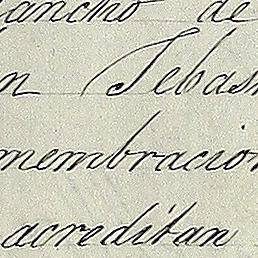 ancho de
n Sebas
membracion
acreditan